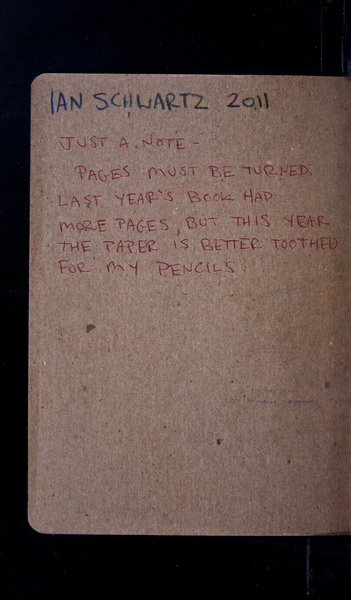 IAN SCHWARTZ 2011
JUST A NOTE -
PAGES MUST BE TURNED.
LAST YEAR'S BOOK HAD
MORE PAGES, BUT THIS YEAR
THE PAPER IS BETTER TOOTHED
FOR MY PENCILS.